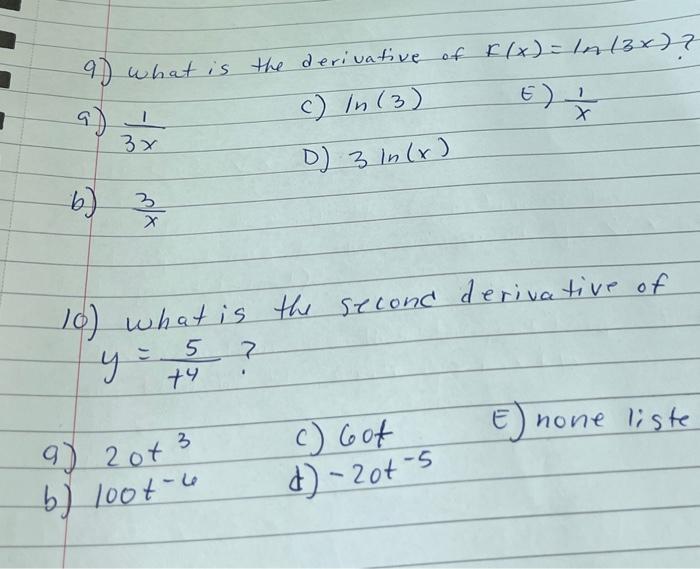 9) what is the derivative of f(x) = ln(3x)?
a) 1/3x
C) ln(3)
E) 1/x
D) 3 ln(x)
b) 3/x
10) what is the second derivative of
y = 5/t4 ?
a) 20t^3
C) 60t
E) none liste
b) 100t^-6
d) -20t^-5